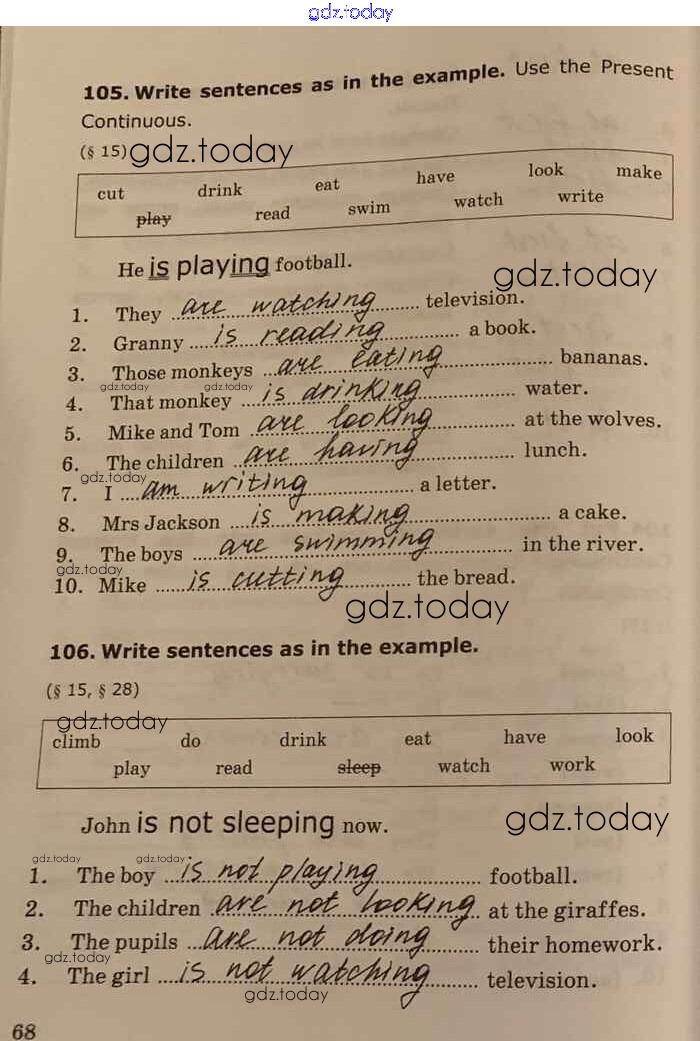 gdz.today
105. Write sentences as in the example. Use the Present
Continuous.
(§ 15) gdz.today
cut drink eat have look make
play read swim watch write
He is playing football.
gdz.today
1. They are watching television.
2. Granny is reading a book.
3. Those monkeys are eating bananas.
gdz.today gdz.today
4. That monkey is drinking water.
5. Mike and Tom are looking at the wolves.
6. The children are having lunch.
gdz.today
7. I am writing a letter.
8. Mrs Jackson is making a cake.
9. The boys are swimming in the river.
gdz.today
10. Mike is cutting the bread.
gdz.today
106. Write sentences as in the example.
(§ 15, § 28)
gdz.today
climb do drink eat have look
play read sleep watch work
John is not sleeping now.
gdz.today
gdz.today gdz.today
1. The boy is not playing football.
2. The children are not looking at the giraffes.
3. The pupils are not doing their homework.
gdz.today
4. The girl is not watching television.
gdz.today
68